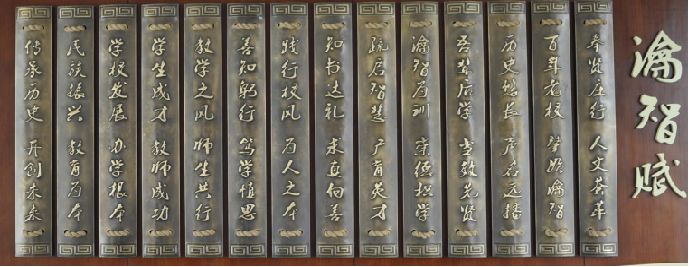 瀹智赋
奉贤庄行 人文荟萃
百年老校 肇始瀹智
历史悠长 声名远播
吾辈后学 效先贤
瀹智为训 崇德学
疏启智慧 广育英才
知书达礼 求真向善
践行校风 为人之本
善知躬行 笃学慎思
教学之风 师生共行
学生成才 教师成功
学校发展 办学根本
民族振兴 教育为本
传承历史 开创未来